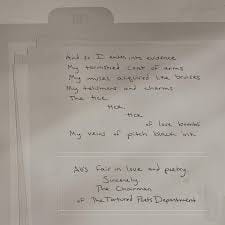 And so I enter into evidence
My tarnished coat of arms
My muses, acquired like bruises
My talismans and charms
The tick,
tick,
tick
of love bombs
My veins of pitch black ink
All's fair in love and poetry.
Sincerely,
The Chairman
of The Tortured Poets Department